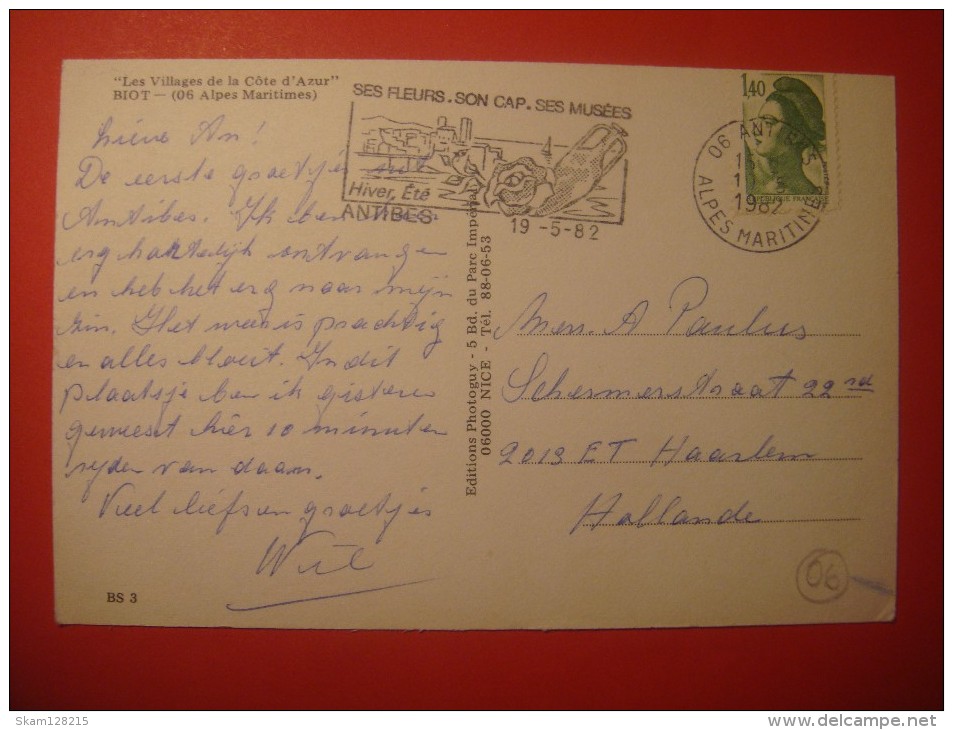 "Les Villages de la Côte d'Azur"
BIOT — (06 Alpes Maritimes)
SES FLEURS . SON CAP . SES MUSÉES
Hiver, Été
ANTIBES
19 -5-82
1,40
RÉPUBLIQUE FRANÇAISE
06 ANTIBES
1982
ALPES MARITIMES
Lieve An!
De eerste groetjes uit
Antibes. Ik ben heel
erg hartelijk ontvangen
en heb het erg naar mijn
zin. Het weer is prachtig
en alles bloeit. In dit
plaatsje ben ik gisteren
geweest hier 10 minuten
rijden van daan.
Veel liefs en groetjes
Wil
Editions Photoguy - 5 Bd. du Parc Impérial
06000 NICE - Tél. 88-06-53
Mevr. A Paulus
Schermerstraat 22 rd
2013 ET Haarlem
Hollande
06
BS 3
Skam128215
www.delcampe.net